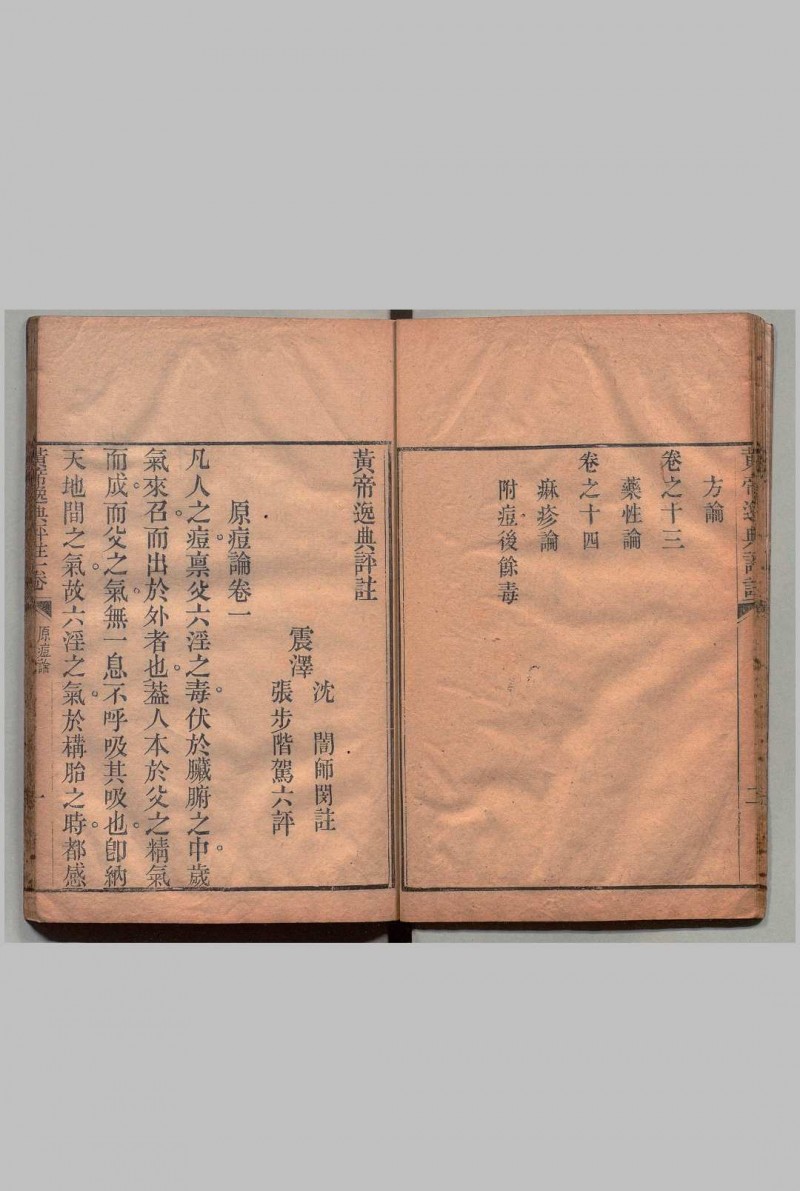 黃帝逸典評註
方論
卷之十三
藥性論
卷之十四
痳疹論
附痘後餘毒
二
黃帝逸典評註
震澤
沈 誾師閔註
張步階駕六評
原痘論卷一
凡人之痘。禀父六淫之毒。伏於臟腑之中。歲
氣來召。而出於外者也。葢人本於父之精氣
而成。而父之氣。無一息不呼吸。其吸也。卽納
天地間之氣。故六淫之氣。於構胎之時。都感
黃帝逸典評註一卷
原痘論
一